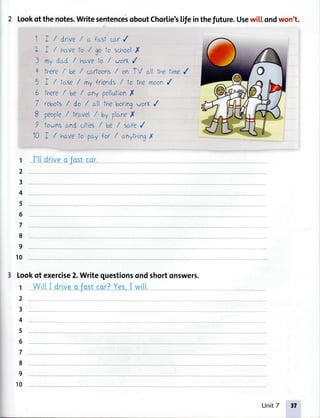 2 Look at the notes. Write sentences about Charlie's life in the future. Use will and won't.
1 I / drive / a fast car ✓
2 I / have to / go to school ✗
3 my dad / have to / work ✓
4 there / be / cartoons / on TV all the time ✓
5 I / take / my friends / to the moon ✓
6 there / be / any pollution ✗
7 robots / do / all the boring work ✓
8 people / travel / by plane ✗
9 towns and cities / be / safe ✓
10 I / have to pay for / anything ✗
1 I'll drive a fast car.
2
3
4
5
6
7
8
9
10
3 Look at exercise 2. Write questions and short answers.
1 Will I drive a fast car? Yes, I will.
2
3
4
5
6
7
8
9
10
Unit 7 37